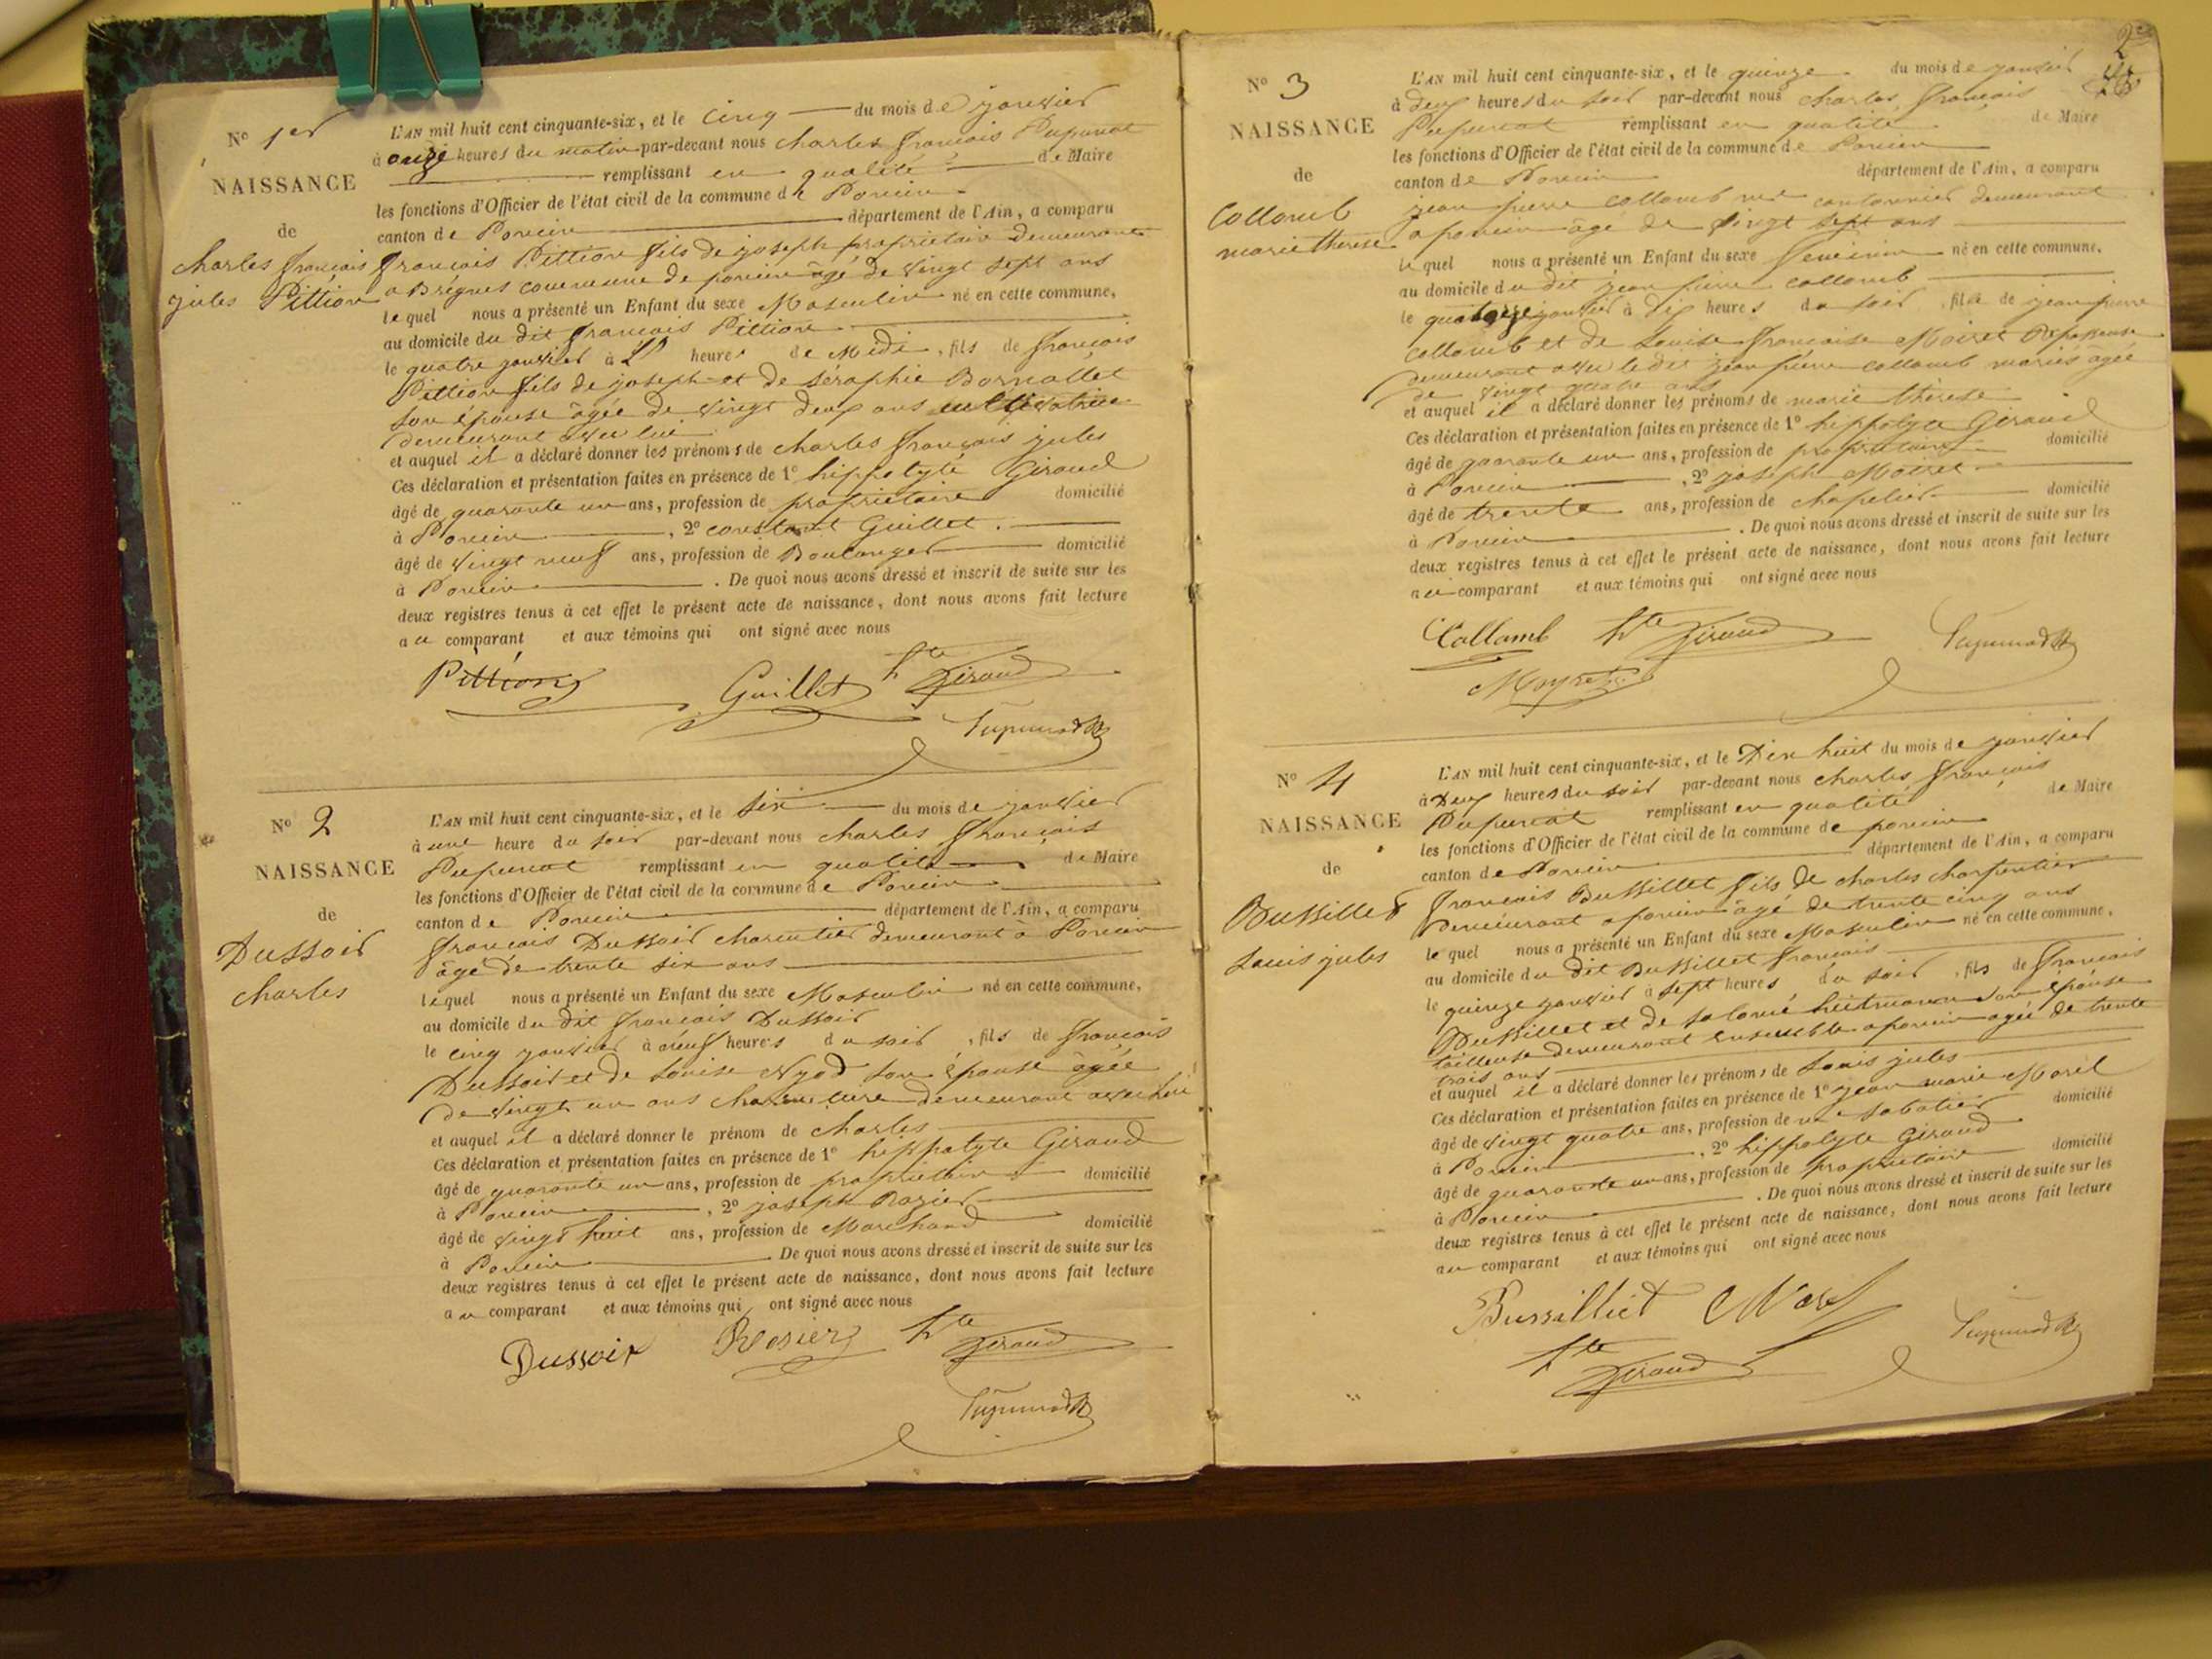 N° 1er
NAISSANCE
de
charles françois
jules Pittion
L'AN mil huit cent cinquante-six, et le cinq du mois de janvier
à onze heures du matin par-devant nous charles françois Pupunat
remplissant en qualité de Maire
les fonctions d'Officier de l'état civil de la commune de Poncin
canton de Poncin département de l'Ain, a comparu
françois Pittion fils de joseph propriétaire demeurant
a Brégnes commune de poncin âgé de vingt sept ans
lequel nous a présenté un Enfant du sexe Masculin né en cette commune,
au domicile du dit françois Pittion
le quatre janvier à heures de Midi, fils de françois
Pittion fils de joseph et de séraphie Bornallet
son épouse âgée de vingt deux ans cultivatrice
demeurant avec lui
et auquel il a déclaré donner les prénoms de charles françois jules
Ces déclaration et présentation faites en présence de 1° hippolyte Giraud
âgé de quarante un ans, profession de propriétaire domicilié
à Poncin, 2° constant Guillet.
âgé de vingt neuf ans, profession de Boulanger domicilié
à Poncin. De quoi nous avons dressé et inscrit de suite sur les
deux registres tenus à cet effet le présent acte de naissance, dont nous avons fait lecture
au comparant et aux témoins qui ont signé avec nous
Pittion Guillet hte Giraud
Pupunat
N° 2
NAISSANCE
de
Dussoir
charles
L'AN mil huit cent cinquante-six, et le six du mois de janvier
à une heure du soir par-devant nous charles françois
Pupunat remplissant en qualité de Maire
les fonctions d'Officier de l'état civil de la commune de Poncin
canton de Poncin département de l'Ain, a comparu
françois Dussoir charcutier demeurant à Poncin
âgé de trente six ans
lequel nous a présenté un Enfant du sexe Masculin né en cette commune,
au domicile du dit françois Dussoir
le cinq janvier à neuf heures du soir, fils de françois
Dussoir et de Louise Nyod son épouse âgée
de vingt un ans demeurant avec lui
et auquel il a déclaré donner le prénom de charles
Ces déclaration et présentation faites en présence de 1° hippolyte Giraud
âgé de quarante un ans, profession de propriétaire domicilié
à Poncin, 2° joseph Rozier
âgé de vingt huit ans, profession de Marchand domicilié
à Poncin De quoi nous avons dressé et inscrit de suite sur les
deux registres tenus à cet effet le présent acte de naissance, dont nous avons fait lecture
au comparant et aux témoins qui ont signé avec nous
Dussoir Rosier hte Giraud
Pupunat
N° 3
NAISSANCE
de
Collomb
marie thérèse
L'AN mil huit cent cinquante-six, et le quinze du mois de janvier
à deux heures du soir par-devant nous charles françois
Pupunat remplissant en qualité de Maire
les fonctions d'Officier de l'état civil de la commune de Poncin
canton de Poncin département de l'Ain, a comparu
jean pierre collomb cantonnier demeurant
a poncin âgé de vingt sept ans
lequel nous a présenté un Enfant du sexe féminin né en cette commune,
au domicile du dit jean pierre collomb
le quatorze janvier à dix heures du soir, fille de jean pierre
collomb et de Louise françoise Moiret Repasseuse
demeurant avec le dit jean pierre collomb mariés âgée
de vingt quatre ans
et auquel il a déclaré donner les prénoms de marie thérèse
Ces déclaration et présentation faites en présence de 1° hippolyte Giraud
âgé de quarante un ans, profession de propriétaire domicilié
à Poncin, 2° joseph Moiret
âgé de trente ans, profession de chapelier domicilié
à Poncin. De quoi nous avons dressé et inscrit de suite sur les
deux registres tenus à cet effet le présent acte de naissance, dont nous avons fait lecture
au comparant et aux témoins qui ont signé avec nous
Collomb hte Giraud Pupunat
Moyret
N° 4
NAISSANCE
de
Bussillet
Louis jules
L'AN mil huit cent cinquante-six, et le Dix huit du mois de janvier
à Deux heures du soir par-devant nous charles françois
Pupunat remplissant en qualité de Maire
les fonctions d'Officier de l'état civil de la commune de poncin
canton de Poncin département de l'Ain, a comparu
françois Bussillet fils de charles charpentier
demeurant a poncin âgé de trente cinq ans
lequel nous a présenté un Enfant du sexe Masculin né en cette commune,
au domicile du dit Bussillet françois
le quinze janvier à sept heures du soir, fils de françois
Bussillet et de salomé son épouse
tailleuse demeurant ensemble a poncin agée de trente
trois ans
et auquel il a déclaré donner les prénoms de Louis jules
Ces déclaration et présentation faites en présence de 1° jean marie Morel
âgé de vingt quatre ans, profession de sabotier domicilié
à Poncin, 2° hippolyte Giraud
âgé de quarante un ans, profession de propriétaire domicilié
à Poncin. De quoi nous avons dressé et inscrit de suite sur les
deux registres tenus à cet effet le présent acte de naissance, dont nous avons fait lecture
au comparant et aux témoins qui ont signé avec nous
Bussilliet Morel
hte Giraud Pupunat